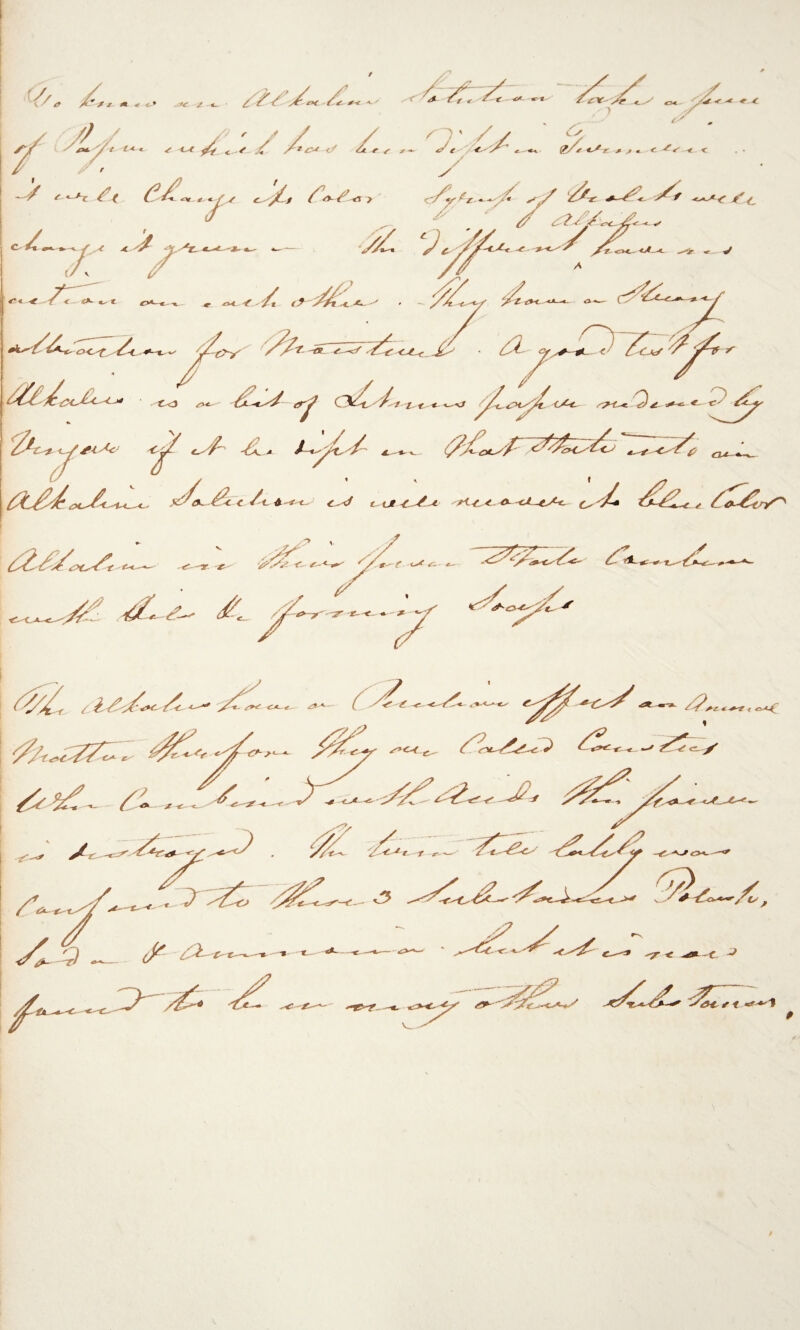 To know an Alkaline Solution take a piece
of Paper which has been dipt in Turmeric ..
it will Change its Color Syrup of Violets will
change it green — The Different ^ Alkalies have no
action on each other . - They have a Strong
attraction for Moisture . A good test for
Alkalies is a bit of Litmus paper redened by
Vingar if it be dipt in that State into an
Alkaline Solution is will recover its blue Color
Alkaline in their pure State Combine
with Oils &c forming Soaps
The Alkalies have a Peculiar effect on Animal
Matter Therefore They are Called Caustics
When Combined with Acids this power
is destroyed . The term till lately was
Confined to these 3 Substances Potash,
Soda & Ammonia . but it is now
found to be in many other Substances,